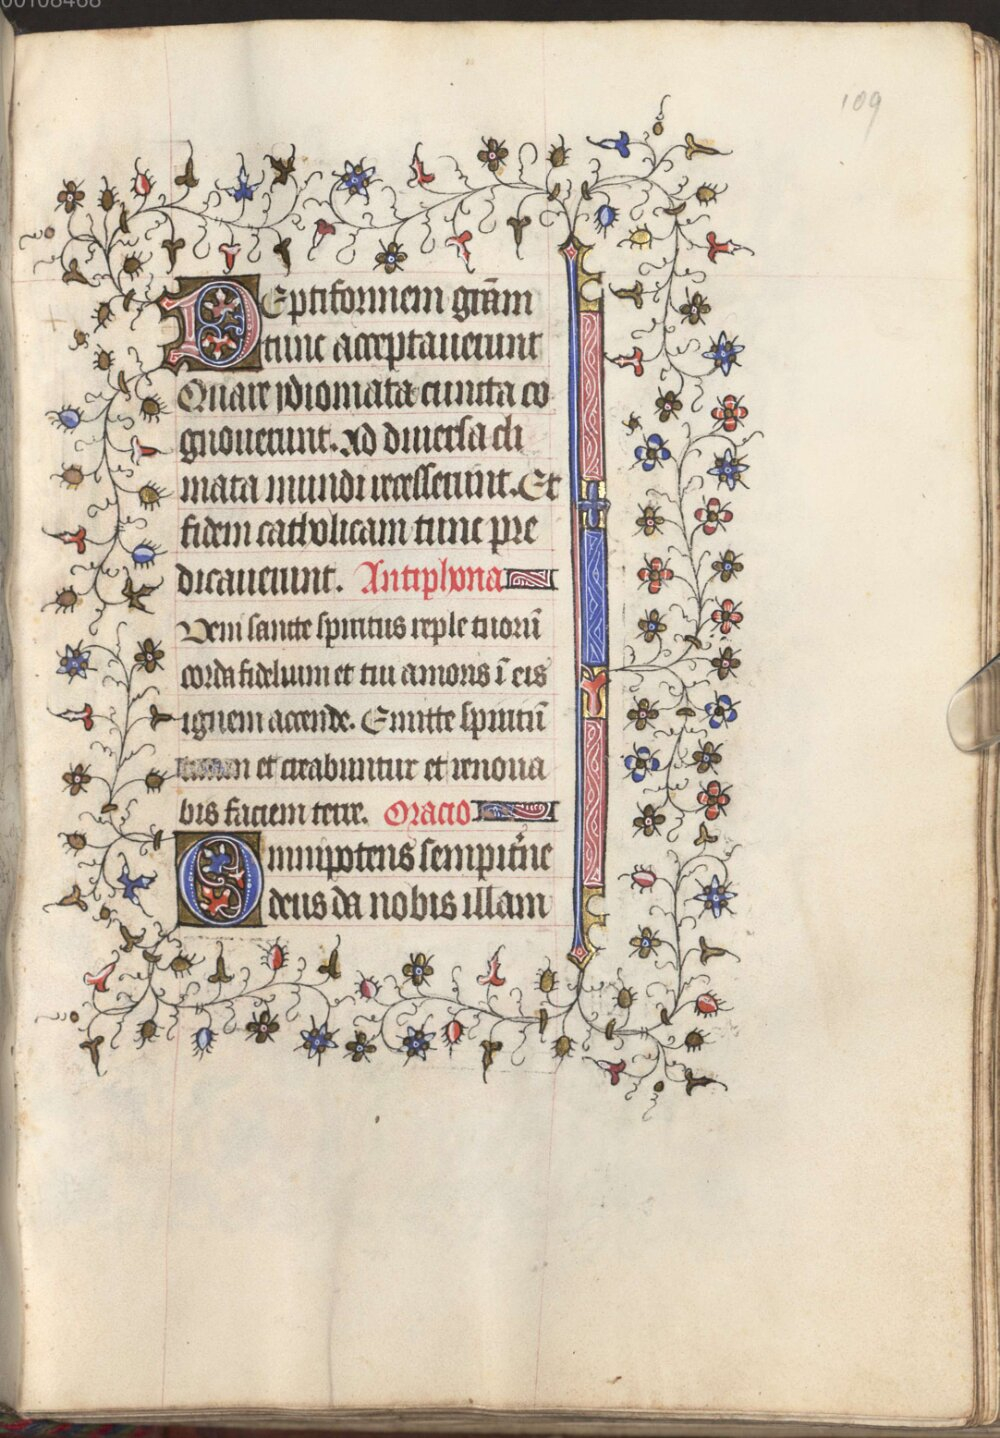 00108468
109
DEptiformem grām
tunc acceptauerunt
Quare ydiomata cuncta co
gnouerunt. Ad diuersa cli
mata mundi recesserunt. Et
fidem catholicam tunc pre
dicauerunt. Antiphona
Veni sancte spiritus reple tuorū
corda fidelium et tui amoris ī eis
ignem accende. Emitte spiritū
tuum et creabuntur et renoua
bis faciem terre. Oracio
Omnipotens sempit̄ne
deus da nobis illam